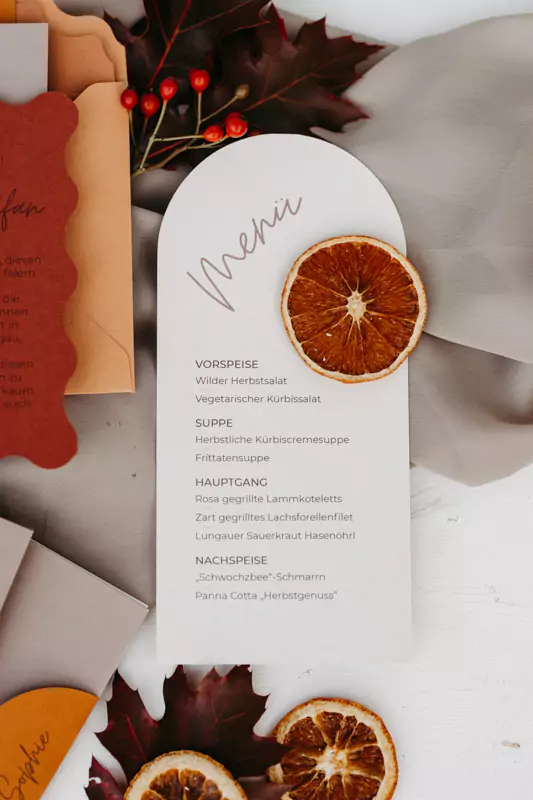 Menü
VORSPEISE
Wilder Herbstsalat
Vegetarischer Kürbissalat
SUPPE
Herbstliche Kürbiscremesuppe
Frittatensuppe
HAUPTGANG
Rosa gegrillte Lammkoteletts
Zart gegrilltes Lachsforellenfilet
Lungauer Sauerkraut Hasenöhrl
NACHSPEISE
„Schwochzbee“-Schmarrn
Panna Cotta „Herbstgenuss“
diesen
feiern
die
in
zu
kaum
euch
Sophie